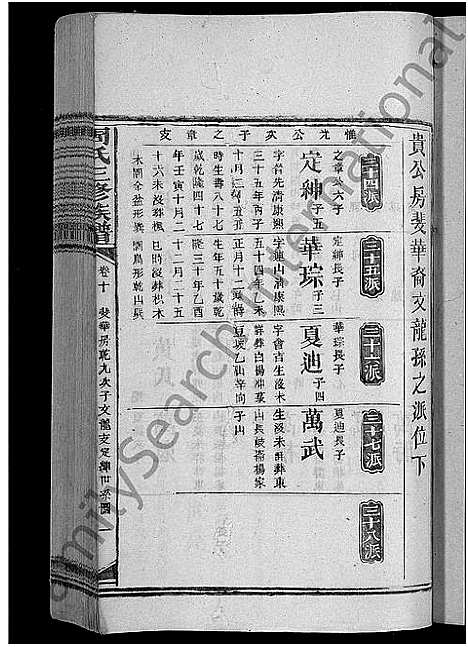 貴公房斐華裔文龍孫之派位下
三十四派
三十五派
三十六派
三十七派
三十八派
之章次六子
定紳 子五
字首先清康熙
三十五年丙子
十月
時生壽八十七
歲乾隆四十七
年壬寅十月二十
十六未沒葬楓
木園金盆形巽
定紳長子
華琮 子三
字蓮山清康熙
五十四年乙未
正月十二
生年五十歲乾
隆三十年乙酉
十二月二十五
巳時沒葬枳木
劉鳥形乾山巽
華琮長子
夏迪 子四
字會吉生沒未
詳葬白楊冲葉
夏坡乙山辛向
夏迪長子
萬武
生沒未詳葬東
山長岐崙楊家
子山
惟九公次子之章支
周氏三修族譜
卷十
斐華房乾九次子文龍支定紳世系圖
一
FamilySearch International